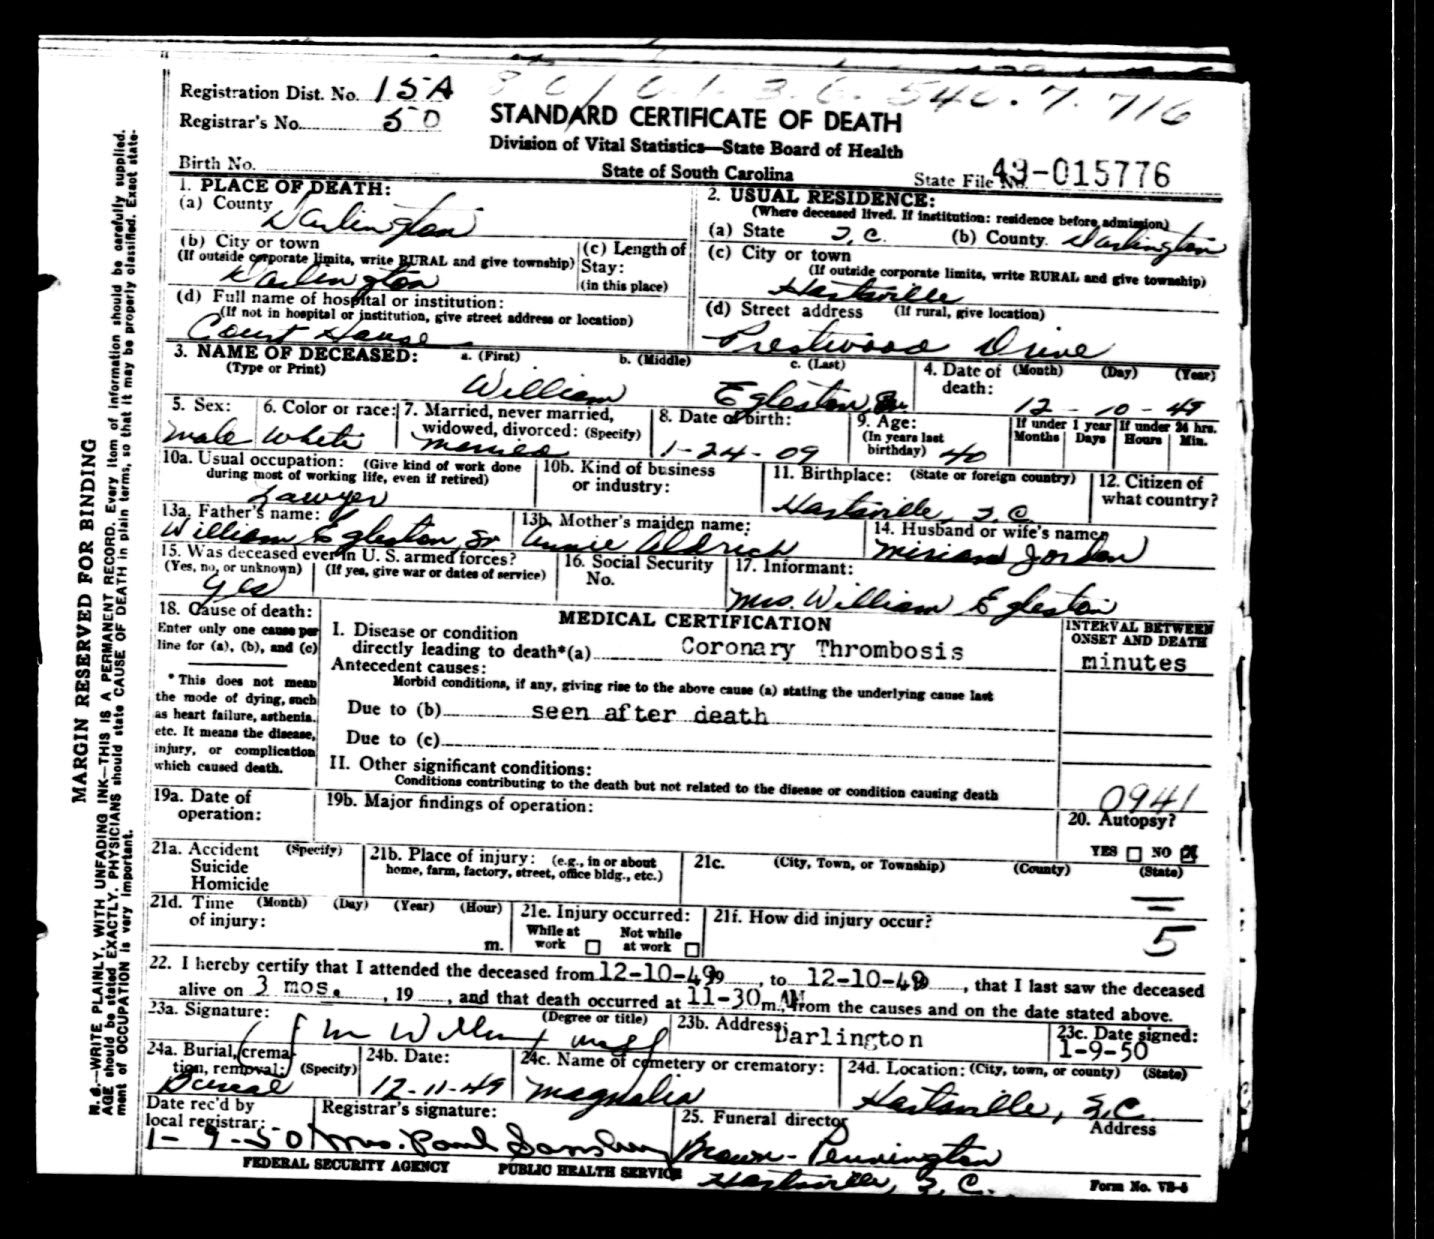 Registration Dist. No. 15A
Registrar's No. 50
STANDARD CERTIFICATE OF DEATH
Division of Vital Statistics—State Board of Health
Birth No.
State of South Carolina
State File No. 49-015776
1. PLACE OF DEATH:
(a) County Darlington
(b) City or town
(If outside corporate limits, write RURAL and give township)
Darlington
(c) Length of
Stay:
(in this place)
(d) Full name of hospital or institution:
(If not in hospital or institution, give street address or location)
Court House
2. USUAL RESIDENCE:
(Where deceased lived. If institution: residence before admission)
(a) State S.C. (b) County. Darlington
(c) City or town
(If outside corporate limits, write RURAL and give township)
Hartsville
(d) Street address (If rural, give location)
Prestwood Drive
3. NAME OF DECEASED: a. (First) b. (Middle) c. (Last)
(Type or Print)
William Egleston, Jr.
4. Date of (Month) (Day) (Year)
death:
12-10-49
5. Sex:
male
6. Color or race:
White
7. Married, never married,
widowed, divorced: (Specify)
Married
8. Date of birth:
1-24-09
9. Age:
(In years last
birthday) 40
If under 1 year
Months Days
If under 24 hrs.
Hours Min.
10a. Usual occupation: (Give kind of work done
during most of working life, even if retired)
Lawyer
10b. Kind of business
or industry:
11. Birthplace: (State or foreign country)
Hartsville, S.C.
12. Citizen of
what country?
13a. Father's name:
William Egleston, Sr
13b. Mother's maiden name:
Annie Aldrich
14. Husband or wife's name
Miriam Jordan
15. Was deceased ever in U. S. armed forces?
(Yes, no, or unknown) (If yes, give war or dates of service)
yes
16. Social Security
No.
17. Informant:
Mrs. William Egleston
18. Cause of death:
Enter only one cause per
line for (a), (b), and (c)
* This does not mean
the mode of dying, such
as heart failure, asthenia,
etc. It means the disease,
injury, or complication
which caused death.
MEDICAL CERTIFICATION
I. Disease or condition
directly leading to death*(a) Coronary Thrombosis
Antecedent causes:
Morbid conditions, if any, giving rise to the above cause (a) stating the underlying cause last
Due to (b) seen after death
Due to (c)
II. Other significant conditions:
Conditions contributing to the death but not related to the disease or condition causing death
INTERVAL BETWEEN
ONSET AND DEATH
minutes
0941
19a. Date of
operation:
19b. Major findings of operation:
20. Autopsy?
YES NO X
21a. Accident (Specify)
Suicide
Homicide
21b. Place of injury: (e.g., in or about
home, farm, factory, street, office bldg., etc.)
21c. (City, Town, or Township) (County) (State)
21d. Time (Month) (Day) (Year) (Hour)
of injury:
m.
21e. Injury occurred:
While at Not while
work at work
21f. How did injury occur?
5
22. I hereby certify that I attended the deceased from 12-10-49, to 12-10-49, that I last saw the deceased
alive on 3 mos., 19, and that death occurred at 11-30 m., AM from the causes and on the date stated above.
23a. Signature: (Degree or title)
23b. Address:
Darlington
23c. Date signed:
1-9-50
24a. Burial, crema-
tion, removal: (Specify)
Burial
24b. Date:
12-11-49
24c. Name of cemetery or crematory:
Magnolia
24d. Location: (City, town, or county) (State)
Hartsville, S.C.
Date rec'd by
local registrar:
1-9-50
Registrar's signature:
Mrs. Paul
25. Funeral director
Address
Brown-Pennington
Hartsville, S.C.
FEDERAL SECURITY AGENCY PUBLIC HEALTH SERVICE
Form No. VS-5
MARGIN RESERVED FOR BINDING
N. B.—WRITE PLAINLY, WITH UNFADING INK—THIS IS A PERMANENT RECORD. Every item of information should be carefully supplied.
AGE should be stated EXACTLY. PHYSICIANS should state CAUSE OF DEATH in plain terms, so that it may be properly classified. Exact state-
ment of OCCUPATION is very important.